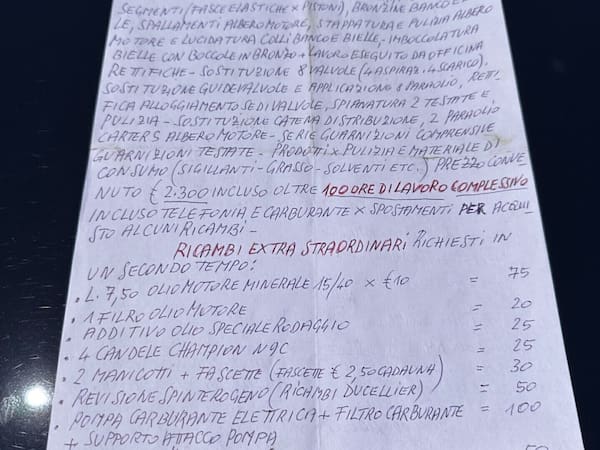 SEGMENTI (FASCE ELASTICHE X PISTONI), BRONZINE BANCO E
LE, SPALLAMENTI ALBERO MOTORE, STAPPATURA E PULIZIA ALBERO
MOTORE E LUCIDATURA COLLI BANCO E BIELLE, IMBOCCOLATURA
BIELLE CON BOCCOLE IN BRONZO + LAVORO ESEGUITO DA OFFICINA
RETTIFICHE - SOSTITUZIONE 8 VALVOLE (4 ASPIRAZ. 4 SCARICO).
SOSTITUZIONE GUIDEVALVOLE E APPLICAZIONE 8 PARAOLIO, RETTI-
FICA ALLOGGIAMENTO SEDI VALVOLE, SPIANATURA 2 TESTATE E
PULIZIA - SOSTITUZIONE CATENA DISTRIBUZIONE, 2 PARAOLIO
CARTERS ALBERO MOTORE - SERIE GUARNIZIONI COMPRENSILE
GUARNIZIONI TESTATE - PRODOTTI X PULIZIA E MATERIALE DI
CONSUMO (SIGILLANTI - GRASSO - SOLVENTI ETC.) PREZZO CONVE
NUTO € 2.300 INCLUSO OLTRE 100 ORE DI LAVORO COMPLESSIVO
INCLUSO TELEFONIA E CARBURANTE X SPOSTAMENTI PER ACQUI
STO ALCUNI RICAMBI -
RICAMBI EXTRA STRAORDINARI RICHIESTI IN
UN SECONDO TEMPO:
• L. 7,50 OLIO MOTORE MINERALE 15/40 X €10 = 75
• 1 FILRO OLIO MOTORE = 20
• ADDITIVO OLIO SPECIALE RODAGGIO = 25
• 4 CANDELE CHAMPION N9C = 25
• 2 MANICOTTI + FASCETTE (FASCETE € 2,50 CADAUNA) = 30
• REVISIONE SPINTEROGENO (RICAMBI DUCELLIER) = 50
• POMPA CARBURANTE ELETTRICA + FILTRO CARBURANTE = 100
+ SUPPORTO ATTACCO POMPA